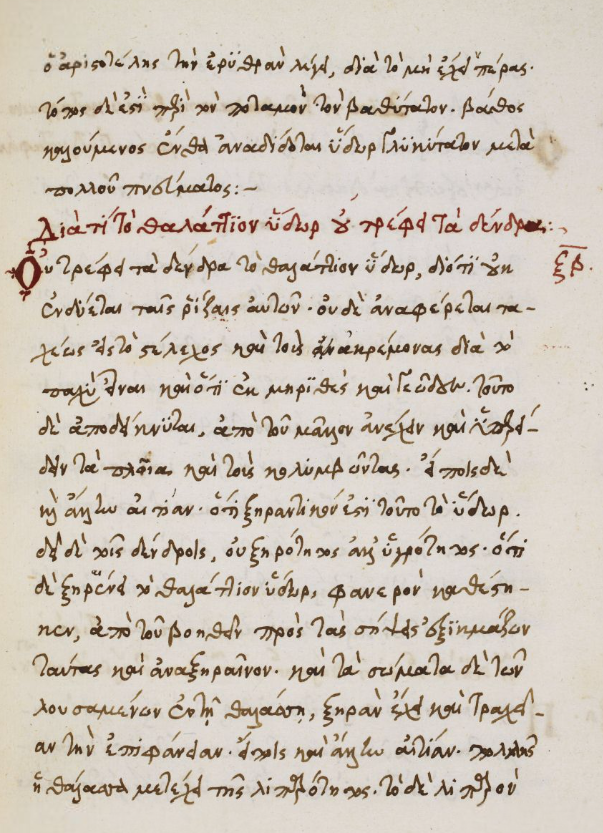 ὁ ἀριστοτέλης τὴν ἐρυθρὰν λέγει, διὰ τὸ μὴ ἔχει πέρας·
τόπος δὲ ἐστὶ περὶ τὸν ποταμὸν τὸν βαθύτατον· βάθος
καλούμενος ἔνθα ἀναδίδοται ὕδωρ γλυκύτατον μετὰ
πολλοῦ πνεύματος:–
Διατί τὸ θαλάττιον ὕδωρ οὐ τρέφει τὰ δένδρα:
Οὐ τρέφει τὰ δένδρα τὸ θαλάττιον ὕδωρ, διότι οὐκ
ξβ.
ἐνδύεται ταῖς ῥίζαις αὐτῶν· οὐδὲ ἀναφέρεται τα-
χέως εἰς τὸ στέλεχος καὶ τοὺς ἀκρέμονας διὰ τὸ
παχὺ εἶναι καὶ ὅτι καὶ γεῶδες. τοῦτο
δὲ ἀποδείκνυται, ἀπὸ τοῦ μᾶλλον ἀνέχειν καὶ ὑπερεί-
δειν τὰ πλοῖα καὶ τοὺς κολυμβῶντας· εἴποις δὲ
καὶ ἄλλην αἰτίαν· ὅτι ξηραντικὸν ἐστὶ τοῦτο τὸ ὕδωρ.
δεῖ δὲ τοῖς δένδροις, οὐ ξηρότητος ἀλλ' ὑγρότητος· ὅτι
δὲ ξηραίνει τὸ θαλάττιον ὕδωρ, φανερὸν καθέστη-
κεν, ἀπὸ τοῦ βοηθεῖν πρὸς τὰς σήψεις
ταύτας καὶ ἀναξηραῖνον· καὶ τὰ σώματα δὲ τῶν
λουσαμένων ἐν τῇ θαλάσσῃ, ξηρὰν ἔχει καὶ τραχεῖ-
αν τὴν ἐπιφάνειαν· εἴποις καὶ ἄλλην αἰτίαν· πολλῆς
ἡ θάλασσα μετέχει τῆς λιπαρότητος· τὸ δὲ λιπαρὸν